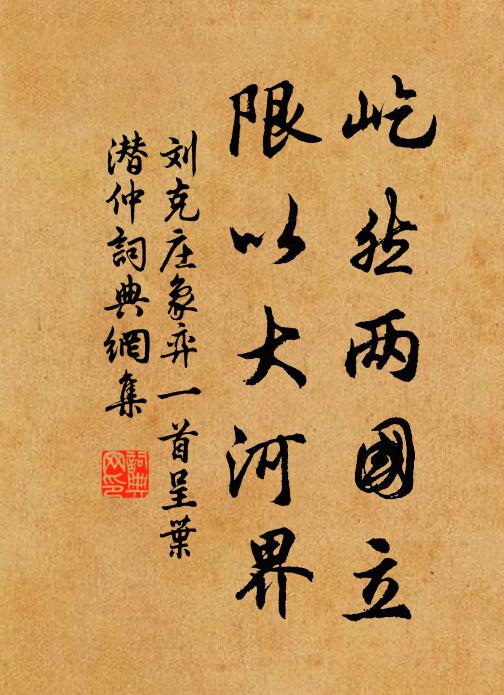 屹然两國立
限以大河界
刘克庄象弈一首呈葉
潜仲詞典網集
詞典
网印